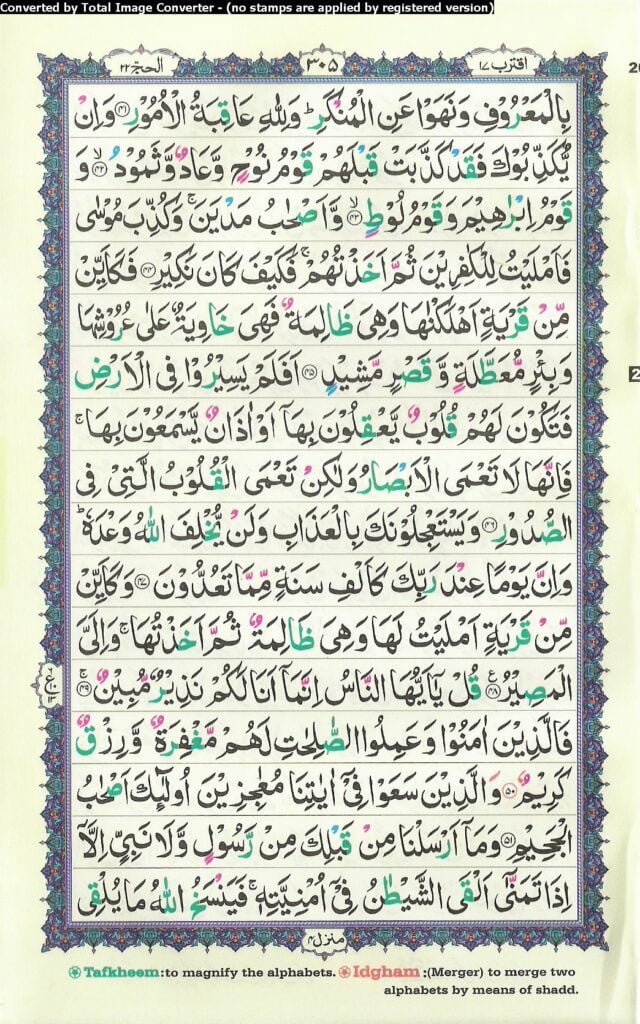 Converted by Total Image Converter - (no stamps are applied by registered version)
اقترب ١٧
٣٠٥
الحجّ ٢٢
بِالْمَعْرُوْفِ وَنَهَوْا عَنِ الْمُنْكَرِ ؕ وَلِلّٰهِ عَاقِبَةُ الْاُمُوْرِ ﴿۴۱﴾ وَاِنْ
يُّكَذِّبُوْكَ فَقَدْ كَذَّبَتْ قَبْلَهُمْ قَوْمُ نُوْحٍ وَّعَادٌ وَّثَمُوْدُ ۙ﴿۴۲﴾ وَ
قَوْمُ اِبْرٰهِيْمَ وَقَوْمُ لُوْطٍ ۙ﴿۴۳﴾ وَّاَصْحٰبُ مَدْيَنَ ۚ وَكُذِّبَ مُوْسٰى
فَاَمْلَيْتُ لِلْكٰفِرِيْنَ ثُمَّ اَخَذْتُهُمْ ۚ فَكَيْفَ كَانَ نَكِيْرِ ﴿۴۴﴾ فَكَاَيِّنْ
مِّنْ قَرْيَةٍ اَهْلَكْنٰهَا وَهِىَ ظَالِمَةٌ فَهِىَ خَاوِيَةٌ عَلٰى عُرُوْشِهَا
وَبِئْرٍ مُّعَطَّلَةٍ وَّقَصْرٍ مَّشِيْدٍ ﴿۴۵﴾ اَفَلَمْ يَسِيْرُوْا فِى الْاَرْضِ
فَتَكُوْنَ لَهُمْ قُلُوْبٌ يَّعْقِلُوْنَ بِهَاۤ اَوْ اٰذَانٌ يَّسْمَعُوْنَ بِهَا ۚ
فَاِنَّهَا لَا تَعْمَى الْاَبْصَارُ وَلٰكِنْ تَعْمَى الْقُلُوْبُ الَّتِىْ فِى
الصُّدُوْرِ ﴿۴۶﴾ وَيَسْتَعْجِلُوْنَكَ بِالْعَذَابِ وَلَنْ يُّخْلِفَ اللّٰهُ وَعْدَهٗ ؕ
وَاِنَّ يَوْمًا عِنْدَ رَبِّكَ كَاَلْفِ سَنَةٍ مِّمَّا تَعُدُّوْنَ ﴿۴۷﴾ وَكَاَيِّنْ
مِّنْ قَرْيَةٍ اَمْلَيْتُ لَهَا وَهِىَ ظَالِمَةٌ ثُمَّ اَخَذْتُهَا ۚ وَاِلَىَّ
الْمَصِيْرُ ﴿۴۸﴾ قُلْ يٰۤاَيُّهَا النَّاسُ اِنَّمَاۤ اَنَا لَكُمْ نَذِيْرٌ مُّبِيْنٌ ۚ﴿۴۹﴾
فَالَّذِيْنَ اٰمَنُوْا وَعَمِلُوا الصّٰلِحٰتِ لَهُمْ مَّغْفِرَةٌ وَّرِزْقٌ
كَرِيْمٌ ﴿۵۰﴾ وَالَّذِيْنَ سَعَوْا فِىْۤ اٰيٰتِنَا مُعٰجِزِيْنَ اُولٰٓئِكَ اَصْحٰبُ
الْجَحِيْمِ ﴿۵۱﴾ وَمَاۤ اَرْسَلْنَا مِنْ قَبْلِكَ مِنْ رَّسُوْلٍ وَّلَا نَبِىٍّ اِلَّاۤ
اِذَا تَمَنّٰٓى اَلْقَى الشَّيْطٰنُ فِىْۤ اُمْنِيَّتِهٖ ۚ فَيَنْسَخُ اللّٰهُ مَا يُلْقِى
منزل ۴
Tafkheem :to magnify the alphabets. Idgham :(Merger) to merge two
alphabets by means of shadd.